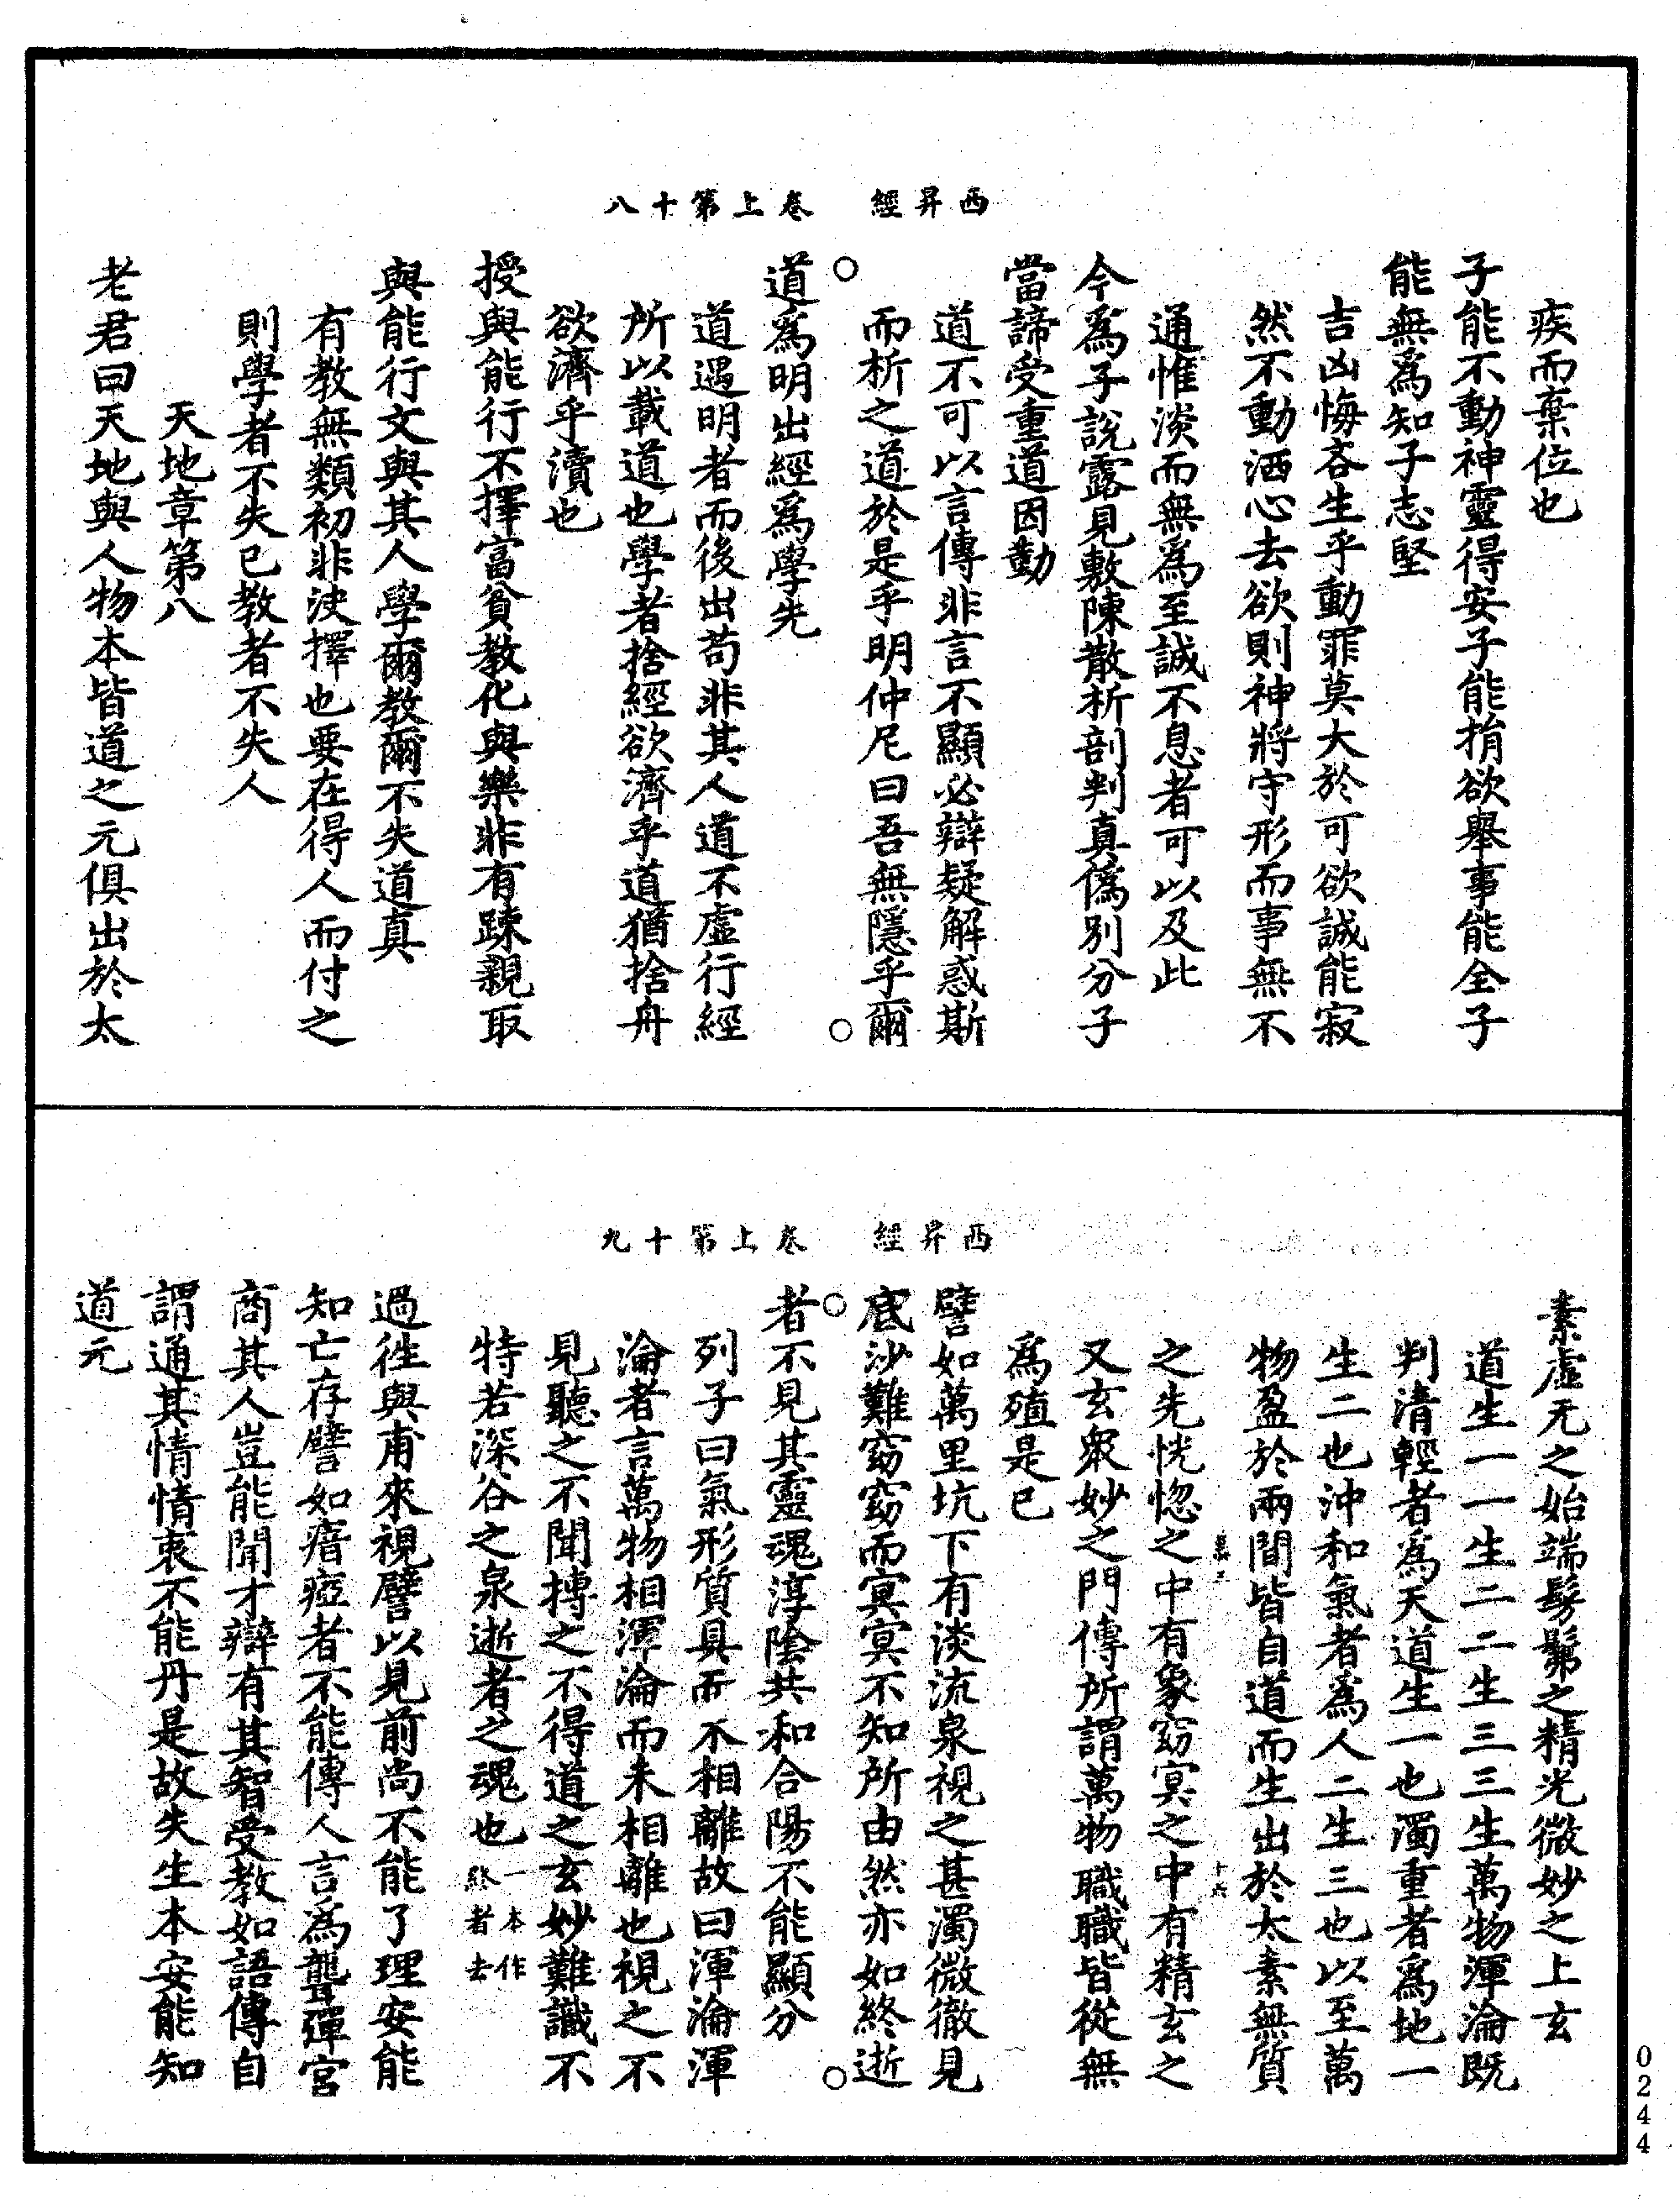 西昇經　卷上第十八
疾而棄位也
子能不動神靈得安子能捐欲舉事能全子
能無為知子志堅
吉凶悔吝生乎動罪莫大於可欲誠能寂
然不動洒心去欲則神將守形而事無不
通惟淡而無為至誠不息者可以及此
今為子說露見敷陳散析剖判真偽別分子
當諦受重道因勤
道不可以言傳非言不顯必辯疑解惑斯
而析之道於是乎明仲尼曰吾無隱乎爾
道為明出經為學先
道遇明者而後出苟非其人道不虛行經
所以載道也學者捨經欲濟乎道猶捨舟
欲濟乎瀆也
授與能行不擇富貧教化與樂非有踈親取
與能行文與其人學爾教爾不失道真
有教無類初非決擇也要在得人而付之
則學者不失已教者不失人
天地章第八
老君曰天地與人物本皆道之元俱出於太
西昇經　卷上第十九
素虛无之始端髣髴之精光微妙之上玄
道生一一生二二生三三生萬物渾淪既
判清輕者為天道生一也濁重者為地一
生二也沖和氣者為人二生三也以至萬
物盈於兩間皆自道而生出於太素無質
之先恍惚之中有象窈冥之中有精玄之
又玄衆妙之門傳所謂萬物職職皆從無
為殖是已
譬如萬里坑下有淡流泉視之甚濁微徹見
底沙難窈窈而冥冥不知所由然亦如終逝
者不見其靈魂淳陰共和合陽不能顯分
列子曰氣形質具而不相離故曰渾淪渾
淪者言萬物相渾淪而未相離也視之不
見聽之不聞摶之不得道之玄妙難識不
特若深谷之泉逝者之魂也一本作終者去
過徃與甫來視譬以見前尚不能了理安能
知亡存譬如瘖瘂者不能傳人言為聾彈宮
商其人豈能聞才辯有其智受教如語傳自
謂通其情情衷不能丹是故失生本安能知
道元
0244